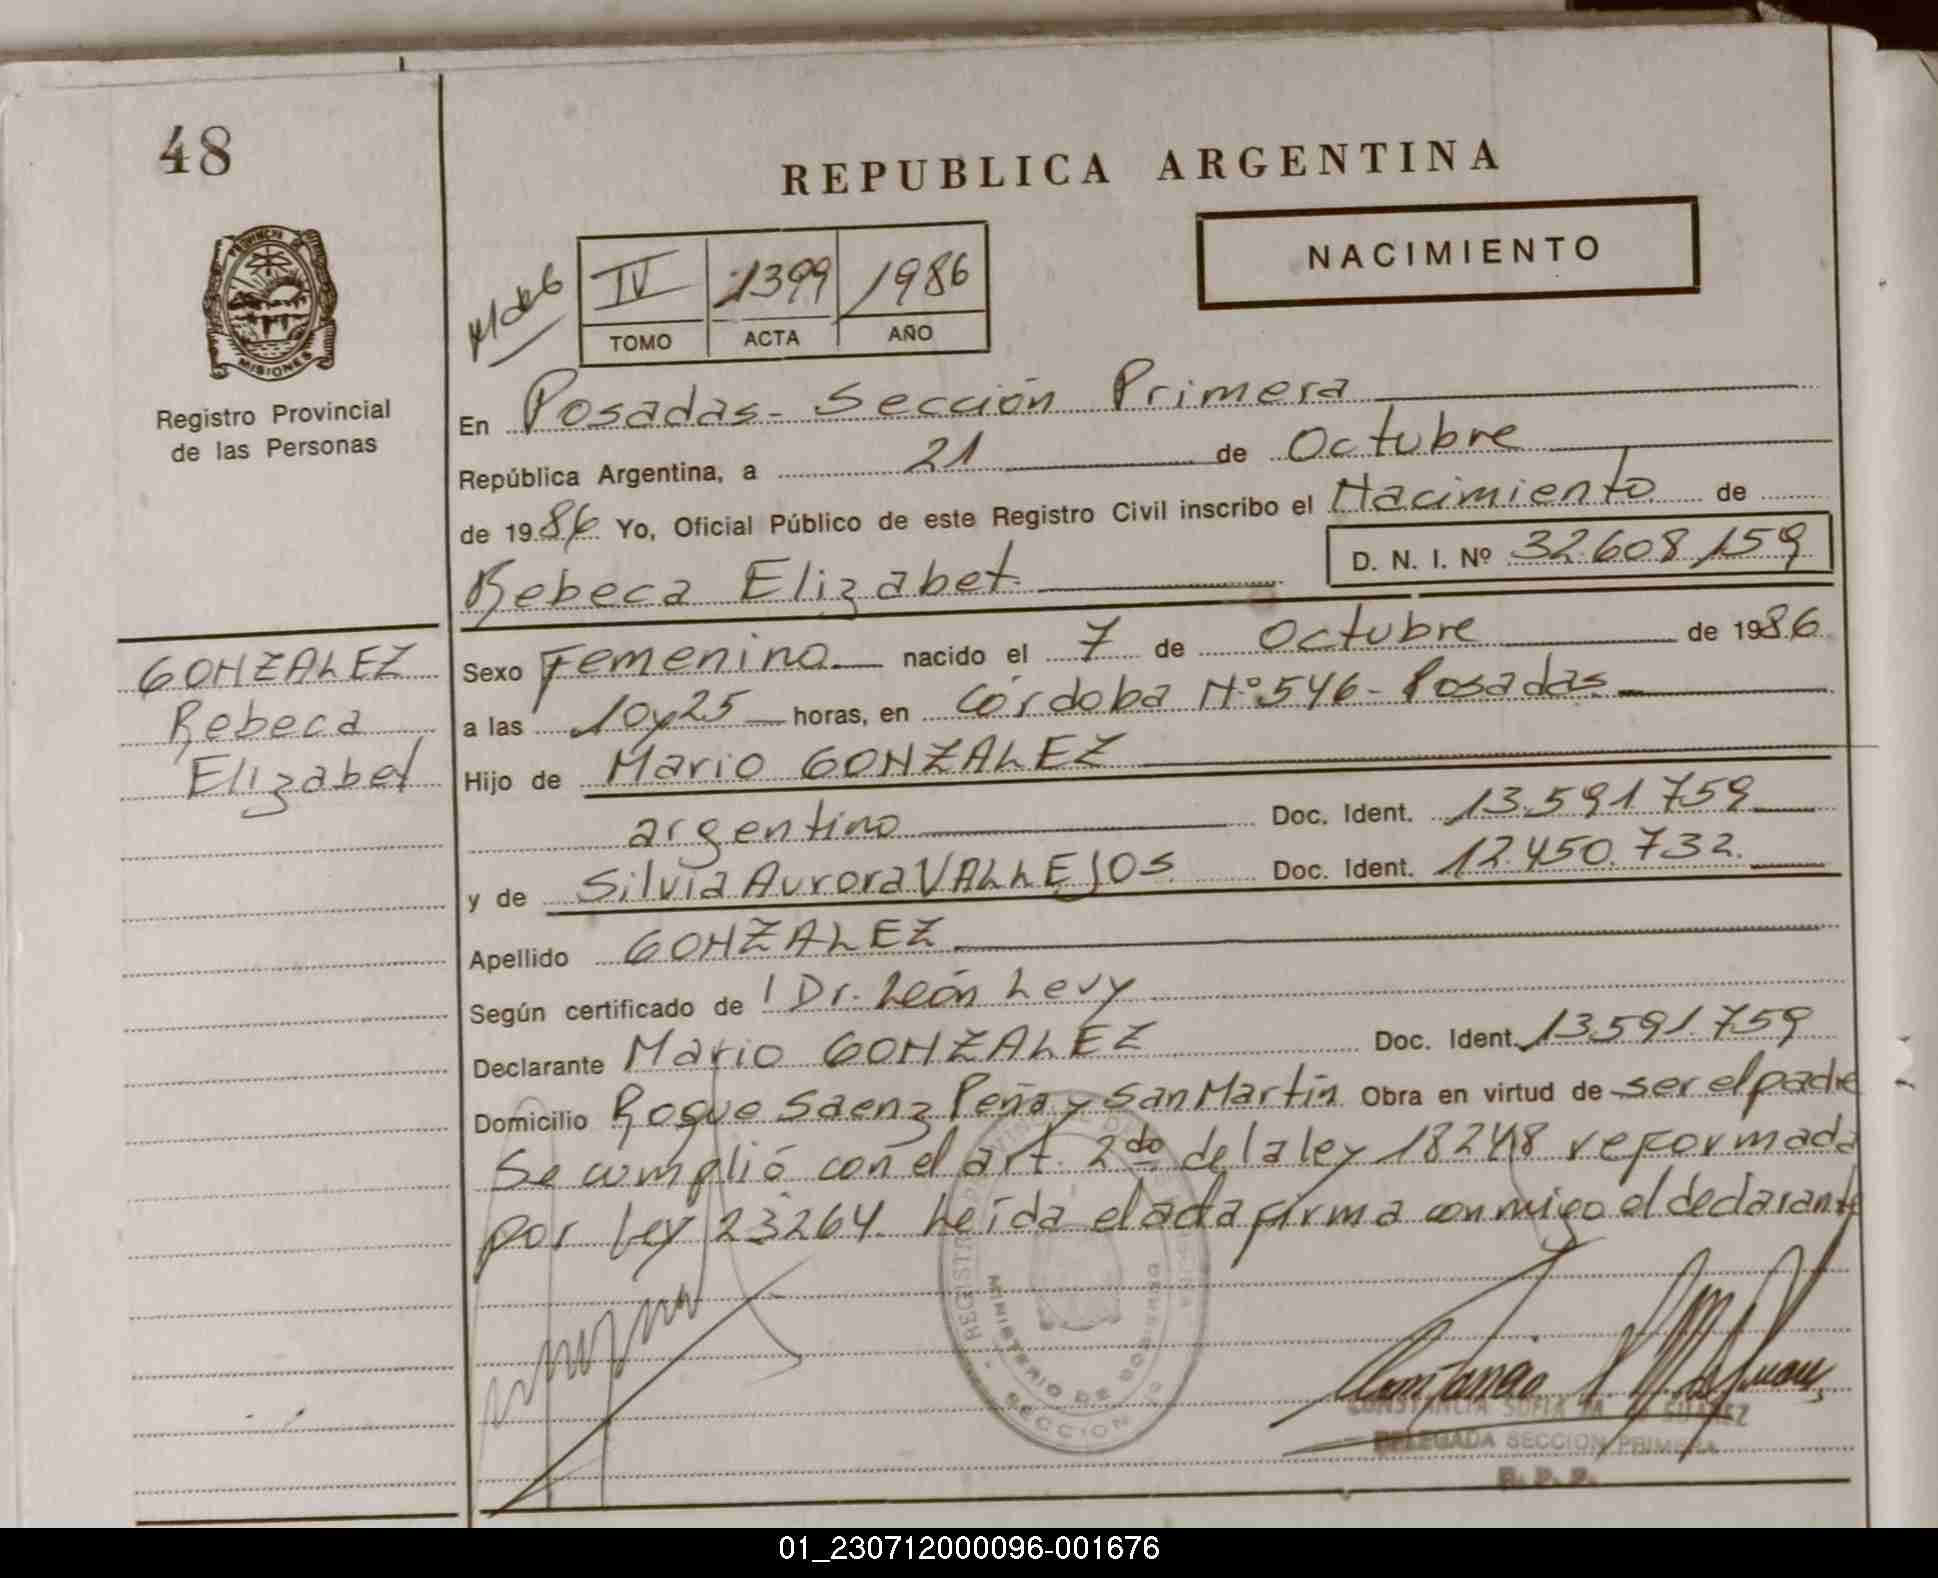 48
REPUBLICA ARGENTINA
NACIMIENTO
IV 1399 1986
TOMO ACTA AÑO
PROVINCIA DE
MISIONES
Registro Provincial
de las Personas
En Posadas - Sección Primera
República Argentina, a 21 de Octubre
de 1986 Yo, Oficial Público de este Registro Civil inscribo el Nacimiento de
Rebeca Elizabet D. N. I. Nº 32.608.159
GONZALEZ
Rebeca
Elizabet
Sexo Femenino nacido el 7 de Octubre de 1986
a las 10y25 horas, en Córdoba Nº 546 - Posadas
Hijo de Mario GONZALEZ
argentino Doc. Ident. 13.591.759
y de Silvia Aurora VALLEJOS Doc. Ident. 12.450.732.
Apellido GONZALEZ
Según certificado de Dr. León Levy
Declarante Mario GONZALEZ Doc. Ident. 13.591.759
Domicilio Roque Saenz Peña y San Martín Obra en virtud de ser el padre
Se cumplió con el art. 2do de la ley 18248 reformada
por Ley 23264. Leída el acta firma conmigo el declarante
MINISTERIO DE GOBIERNO
SECCION
CONSTANCIA SOFIA M. de SUAREZ
DELEGADA SECCION PRIMERA
R. P. P.
01_230712000096-001676